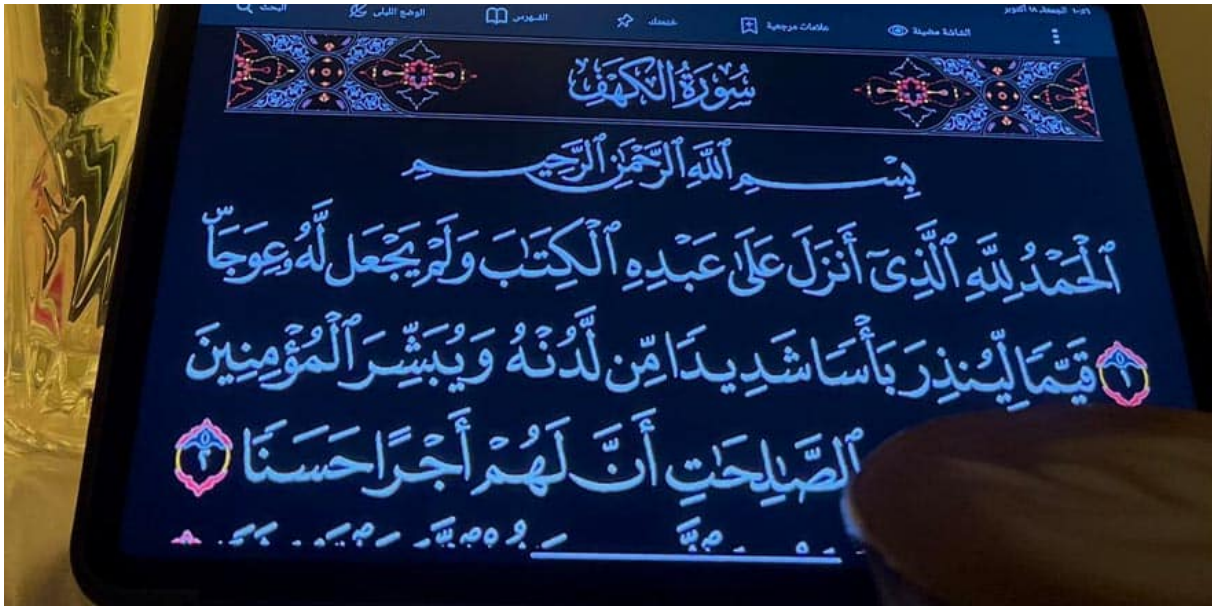 ١٠:٢٦ الجمعة ١٨ أكتوبر
الشاشة مضيئة علامات مرجعية ختمتك الفهرس الوضع الليلي البحث
سُورَةُ الكَهْفِ
بِسْمِ ٱللَّهِ ٱلرَّحْمَٰنِ ٱلرَّحِيمِ
ٱلْحَمْدُ لِلَّهِ ٱلَّذِىٓ أَنزَلَ عَلَىٰ عَبْدِهِ ٱلْكِتَٰبَ وَلَمْ يَجْعَل لَّهُۥ عِوَجَاۜ
١ قَيِّمٗا لِّيُنذِرَ بَأْسٗا شَدِيدٗا مِّن لَّدُنْهُ وَيُبَشِّرَ ٱلْمُؤْمِنِينَ
ٱلصَّٰلِحَٰتِ أَنَّ لَهُمْ أَجْرًا حَسَنٗا ٢